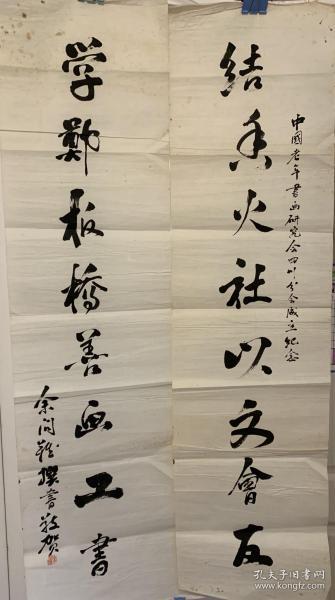 中國老年書画研究会四川分会成立紀念
結香火社以文會友
學鄭板橋善画工書
余閒韜撰書敬贺
孔夫子旧书网